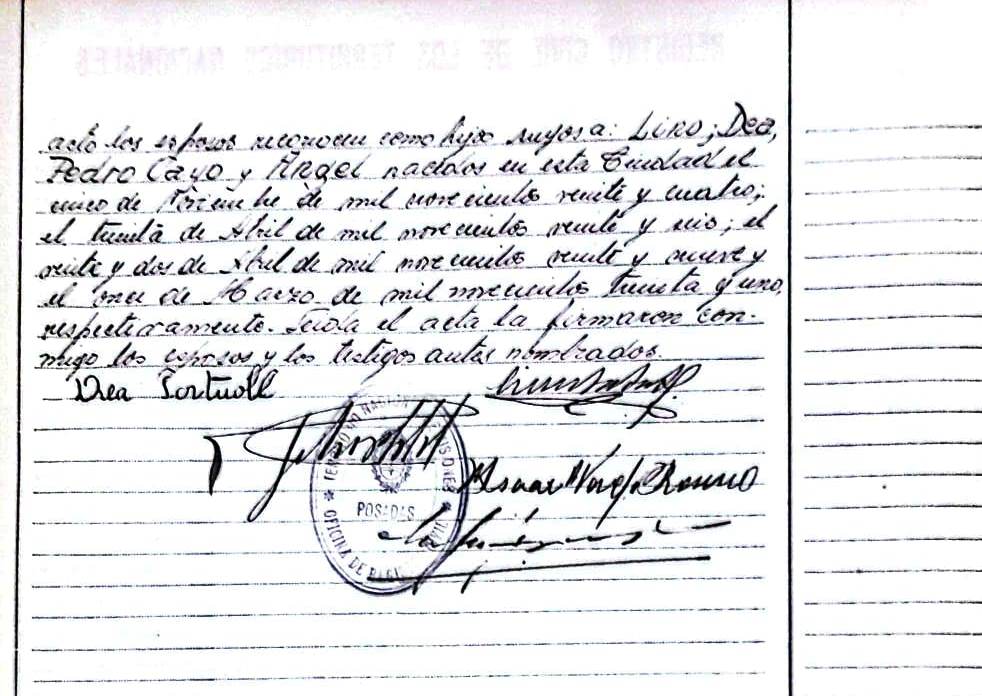 REGISTRO CIVIL DE LOS TERRITORIOS NACIONALES
acto los esposos reconocen como hijos suyos a: Lino; Dea,
Pedro Cayo y Angel nacidos en esta Ciudad el
cinco de de mil novecientos veinte y cuatro;
el treinta de Abril de mil novecientos veinte y seis; el
veinte y dos de Abril de mil novecientos veinte y nueve y
el once de Marzo de mil novecientos treinta y uno,
respectivamente. Leida el acta la firmaron con-
migo los esposos y los testigos antes nombrados.
Dea
POSADAS
OFICINA DE